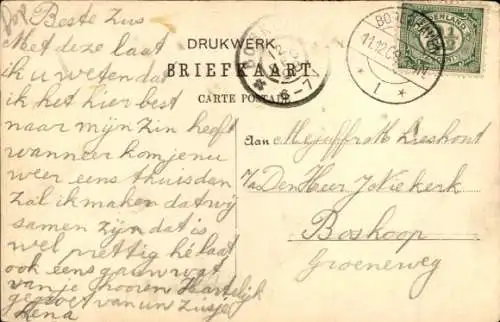 Dep
Beste Zus
Met deze laat
ik u weten dat
ik het hier best
naar mijn zin heeft
wanneer kom je nu
weer eens thuis dan
zal ik maken dat wij
samen zijn dat is
wel prettig hé laat
ook eens gauw wat
van je hooren Hartelijk
gegroet van uw Zusje
Lena
DRUKWERK
BRIEFKAART.
CARTE POSTALE
NEDERLAND
1/2
11.12.0
1
6-7
Aan Mejuffr M Lieshout
p/a Den Heer J Niekerk
Boskoop
Groeneweg